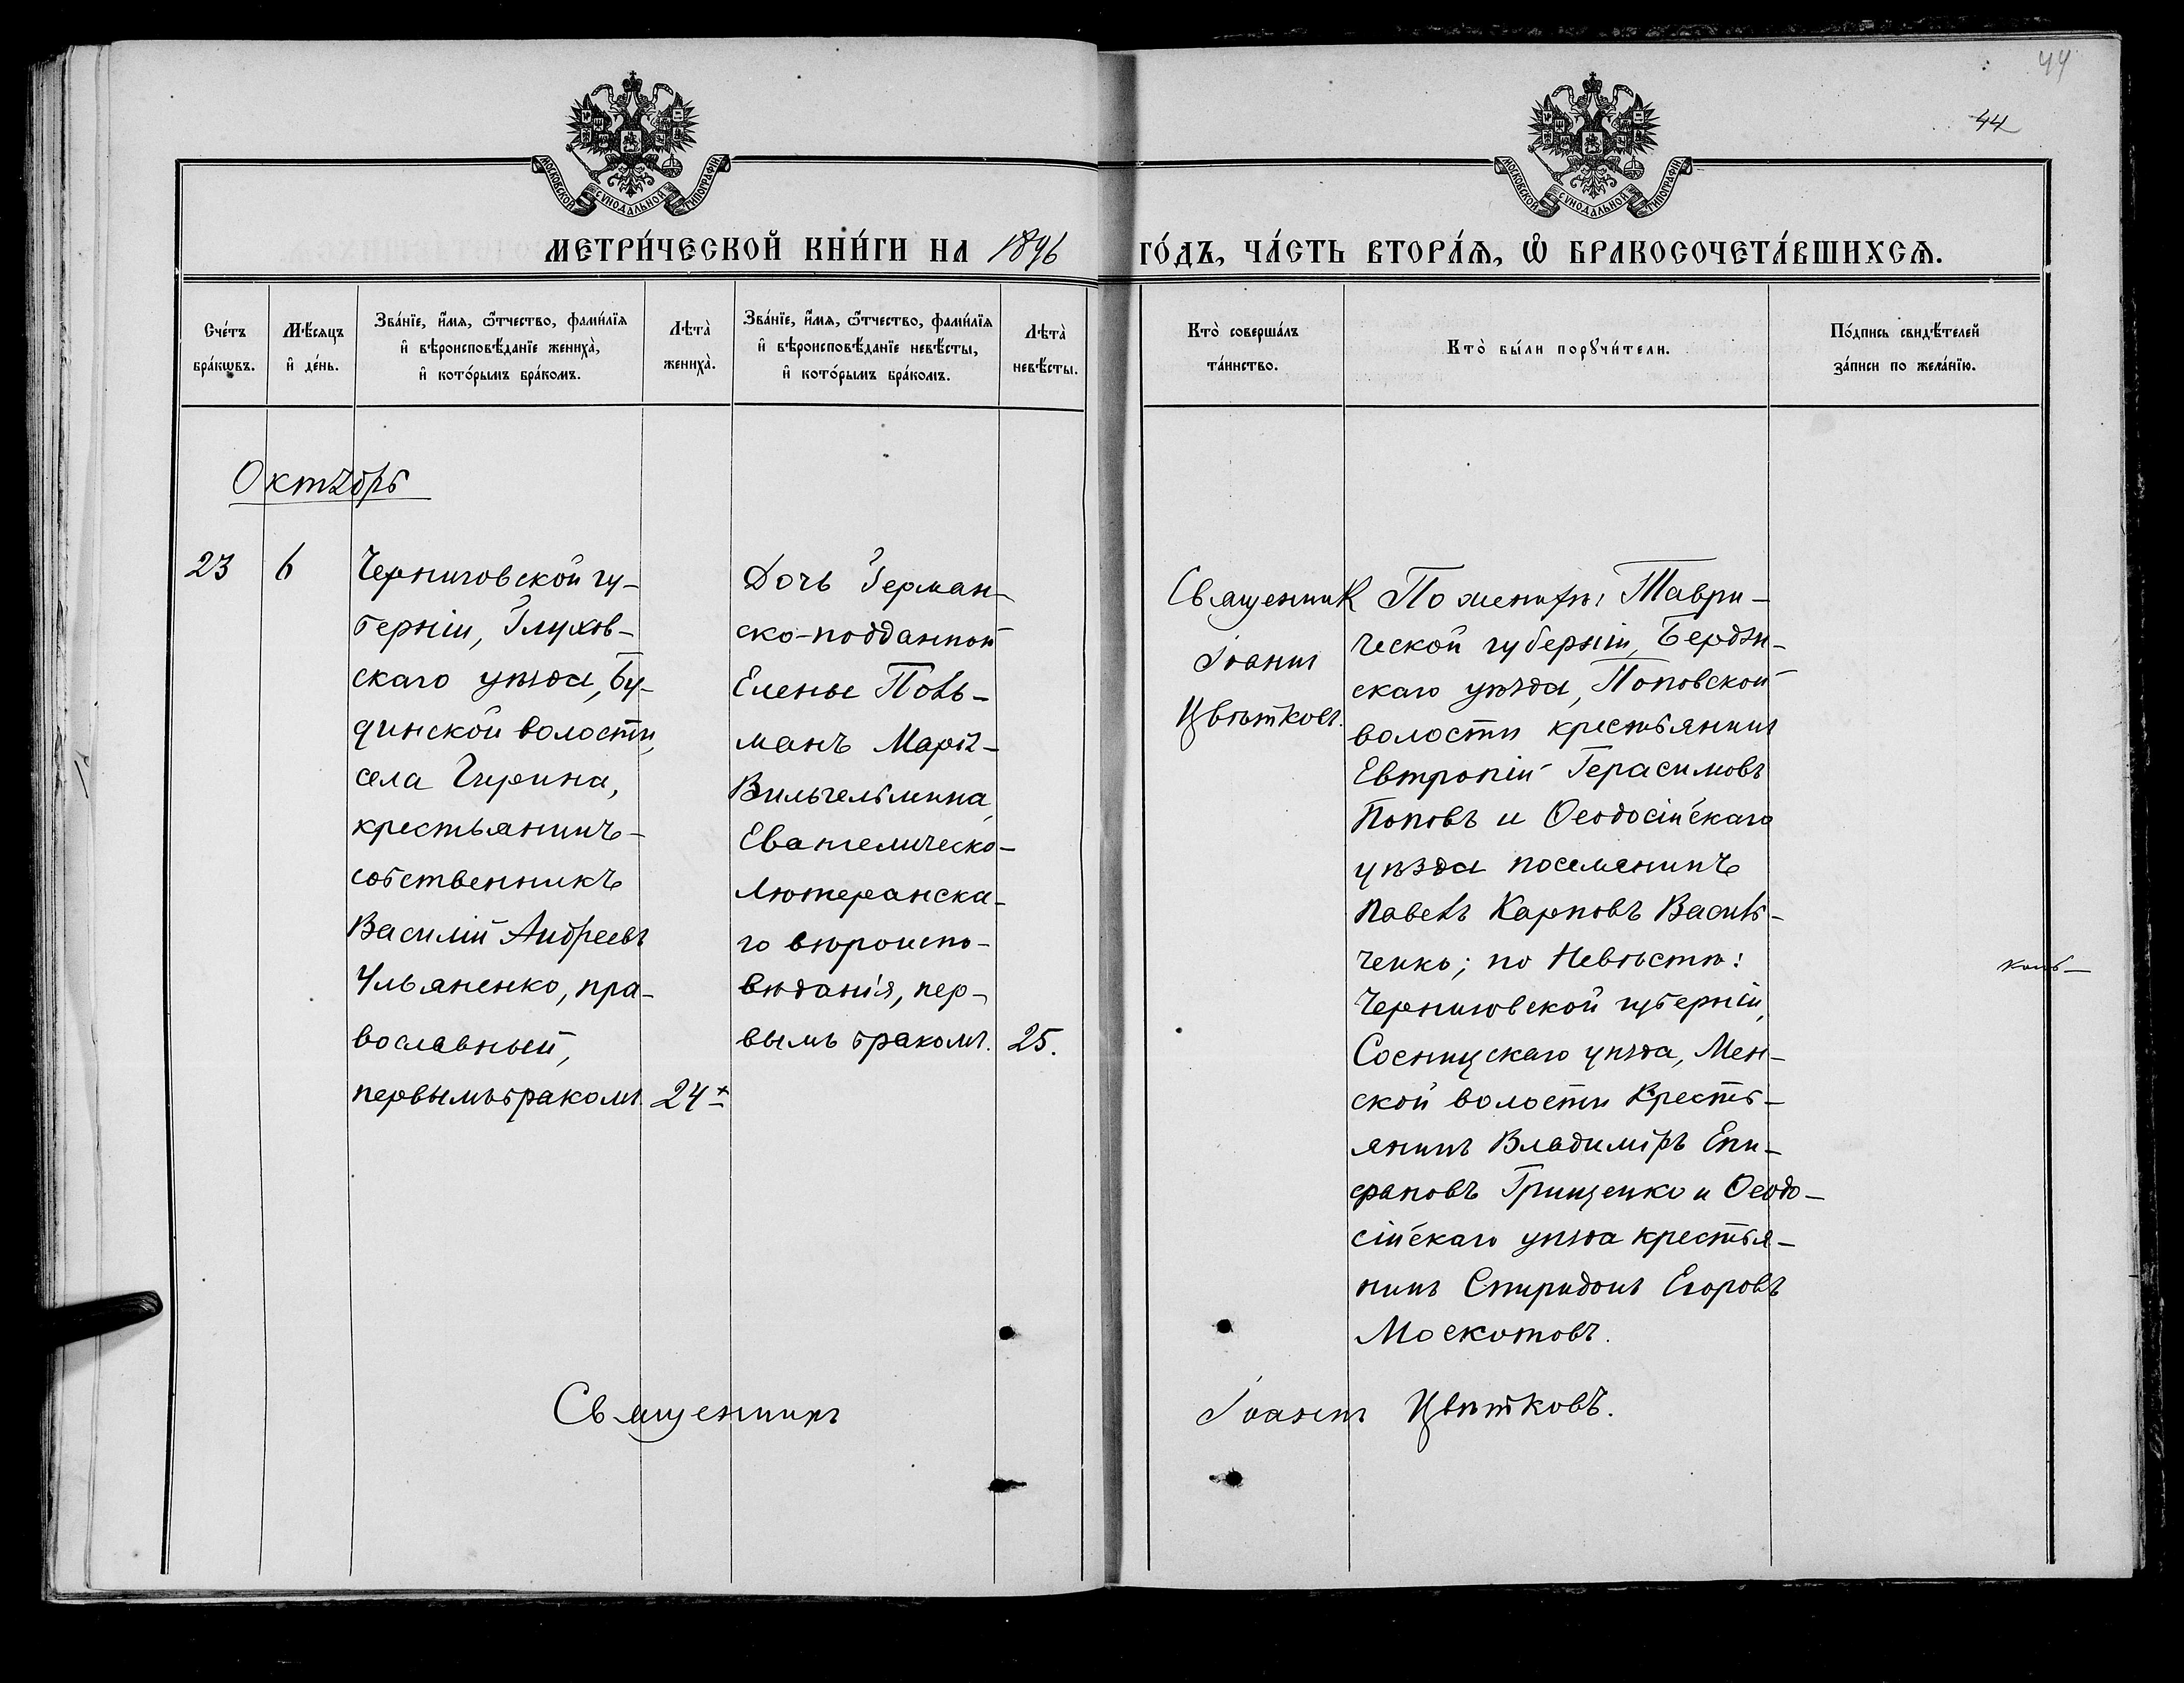 44
44
МОСКОВСКОЙ СѴНОДАЛЬНОЙ ТИПОГРАФІИ
МОСКОВСКОЙ СѴНОДАЛЬНОЙ ТИПОГРАФІИ
МЕТРИ́ЧЕСКОЙ КНИ́ГИ НА 1896 ГО́ДЪ, ЧА́СТЬ ВТОРА́Ѧ, Ѡ҆ БРАКОСОЧЕТА́ВШИХСѦ.
Сче́тъ
бра́кѡвъ.
Мѣ́сяцъ
и҆ де́нь.
Зва́нїе, и҆́мя, ѻ҆́тчество, фами́лїя
и҆ вѣроисповѣ́данїе жениха̀,
и҆ кото́рымъ бра́комъ.
Лѣта̀
жениха̀.
Зва́нїе, и҆́мя, ѻ҆́тчество, фами́лїя
и҆ вѣроисповѣ́данїе невѣ́сты,
и҆ кото́рымъ бра́комъ.
Лѣта̀
невѣ́сты.
Кто̀ соверша́лъ
та́инство.
Кто̀ бы́ли порꙋчи́тели.
По́дпись свидѣ́телей
за́писи по жела́нїю.
Октябрь
23
6
Черниговской гу-
берніи, Глухов-
скаго уѣзда, Бу-
динской волости,
села Гирина,
крестьянинъ-
собственникъ
Василій Андреевъ
Ульяненко, пра-
вославный,
первымъ бракомъ.
24
Дочь Герман-
ско-подданной
Елены Поль-
манъ Марія-
Вильгельмина,
Евангелическо-
Лютеранска-
го вѣроиспо-
вѣданія, пер-
вымъ бракомъ.
25.
Священникъ
Іоаннъ
Цвѣтковъ.
По женихѣ: Таври-
ческой губерніи, Бердян-
скаго уѣзда, Поповской
волости крестьянинъ
Евтропій Герасимовъ
Поповъ и Ѳеодосійскаго
уѣзда поселянинъ
Павелъ Карповъ Василь-
ченко; по Невѣстѣ:
Черниговской губерніи,
Сосницскаго уѣзда, Мен-
ской волости Кресть-
янинъ Владиміръ Епи-
фановъ Грищенко и Ѳеодо-
сійскаго уѣзда крестья-
нинъ Спиридонъ Егоровъ
Москотовъ.
Священникъ Іоаннъ Цвѣтковъ.